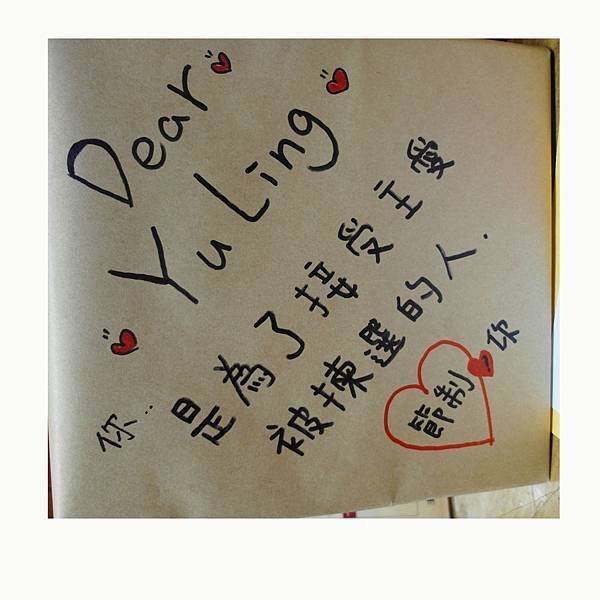 Dear
Yu Ling
你..
是為了接受主愛
被揀選的人.
節制
你